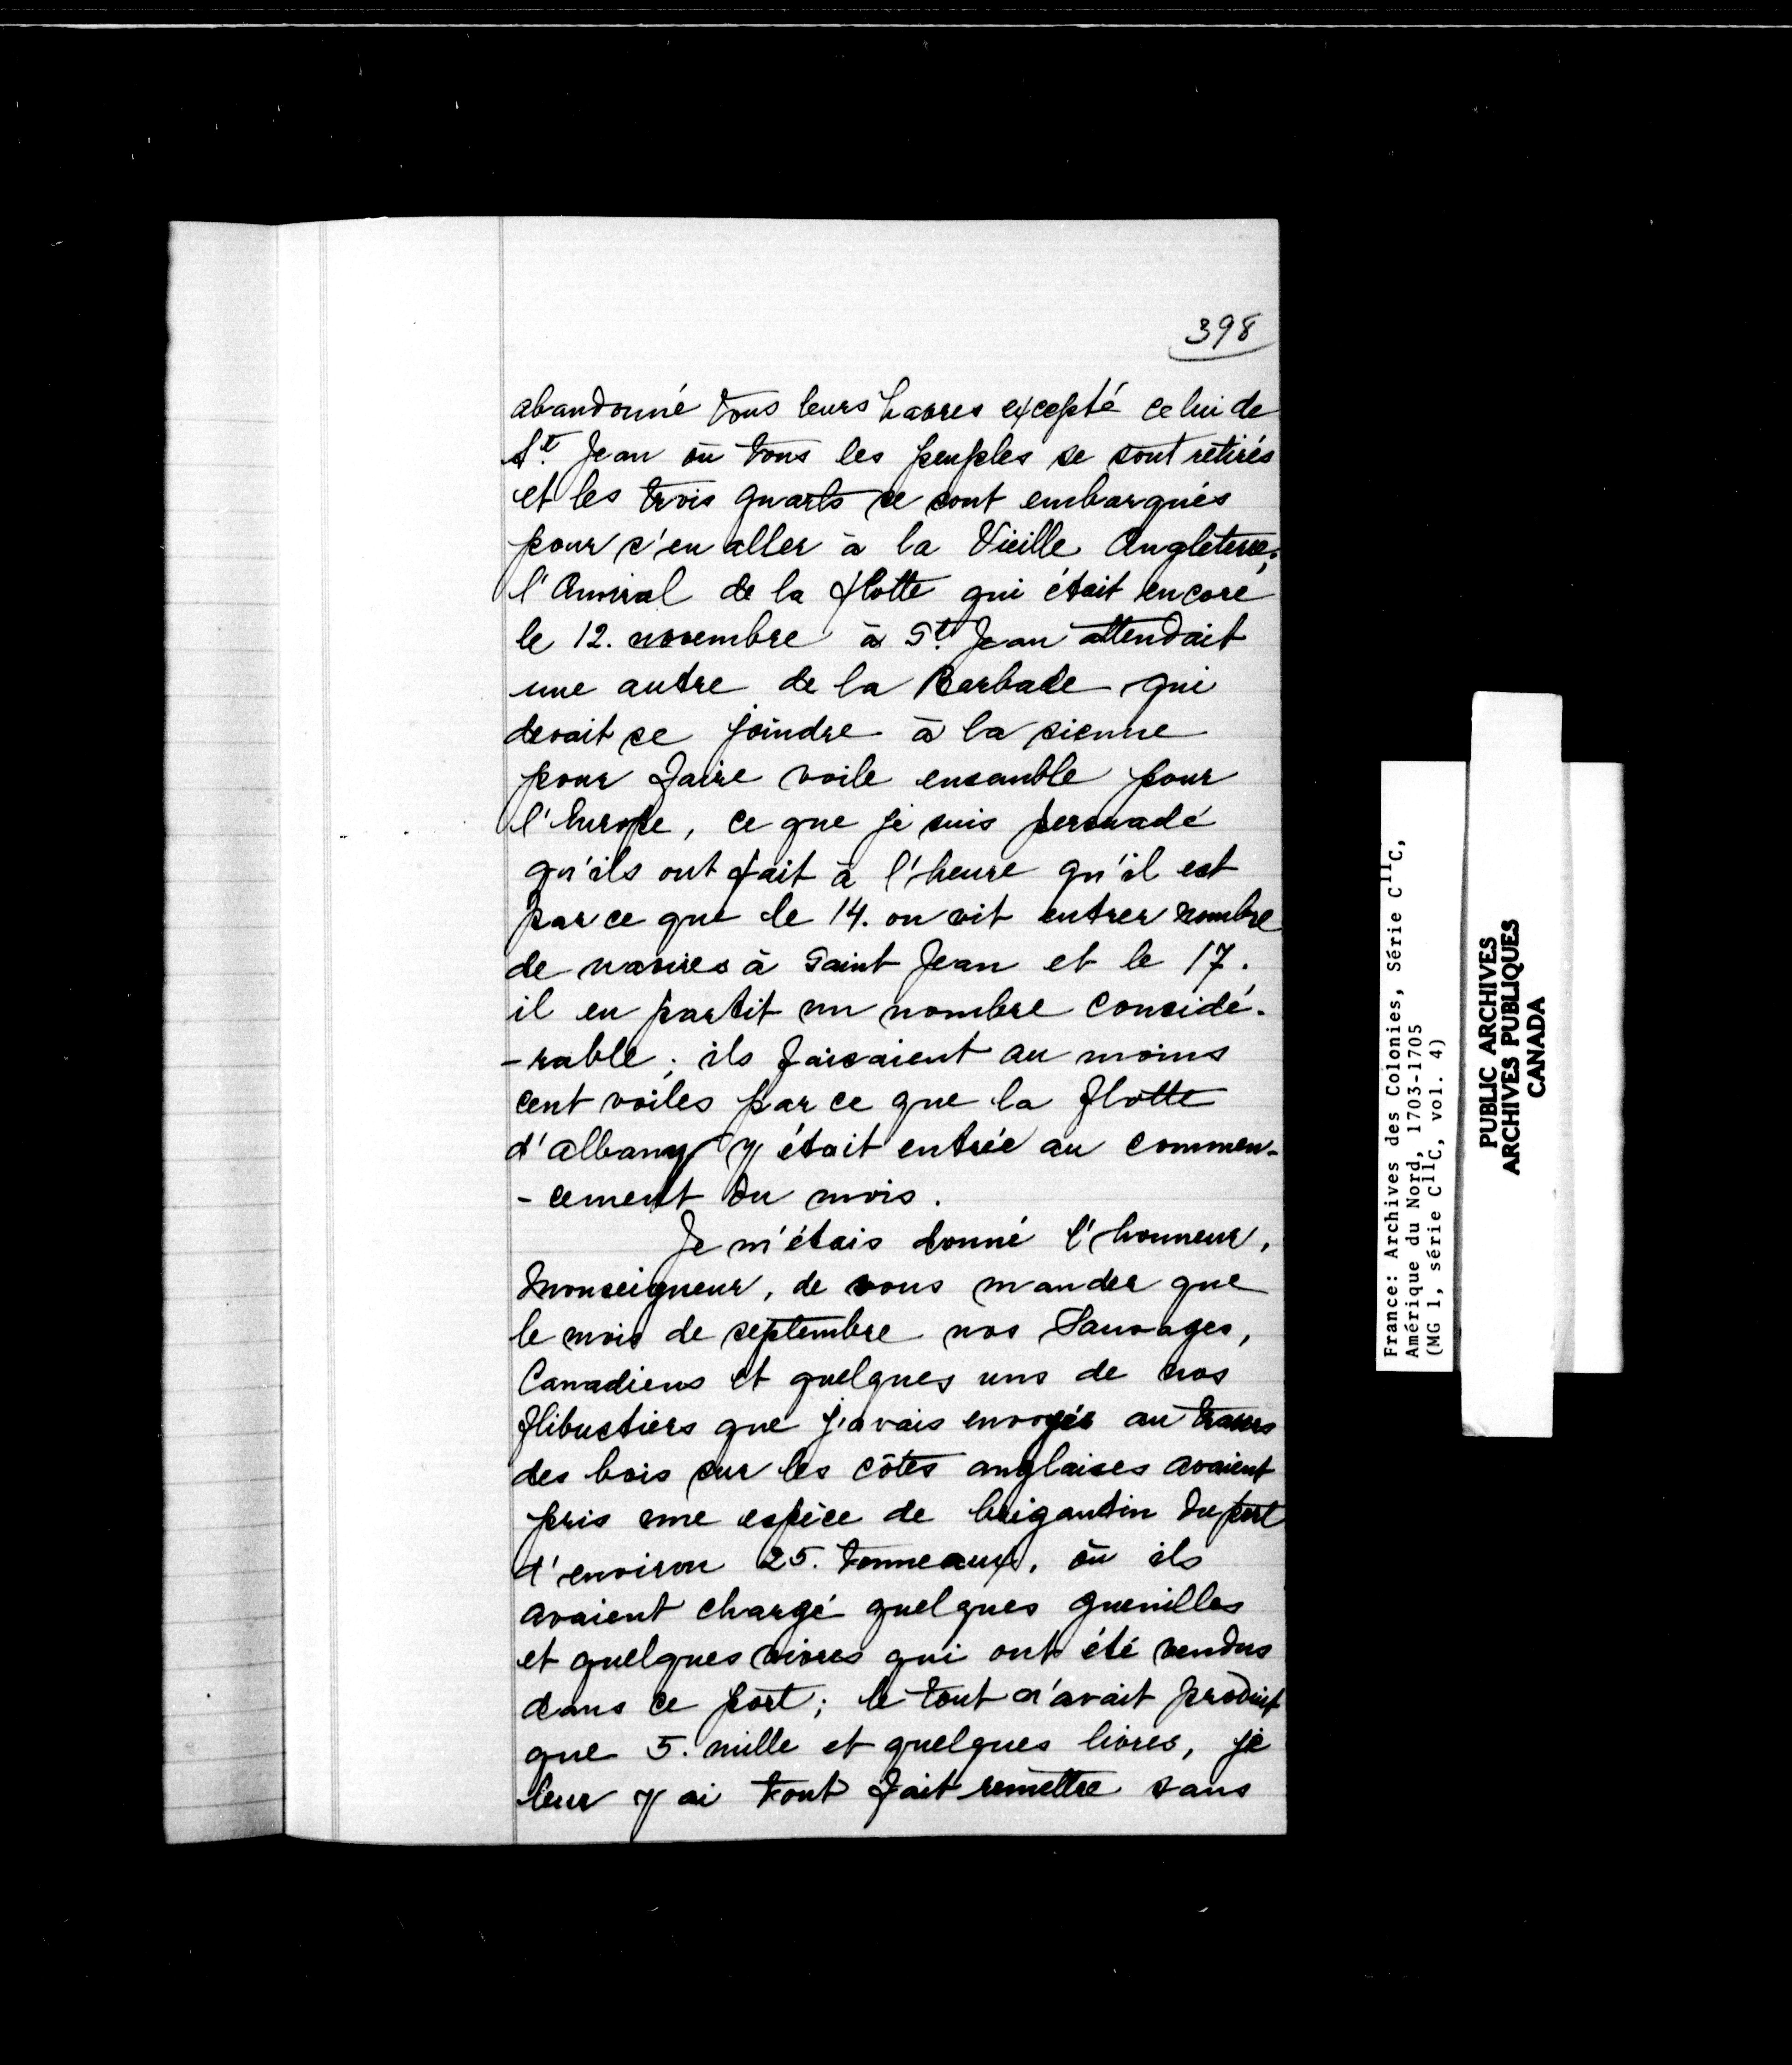 398
abandonné tous leurs havres excepté celui de
St. Jean où tous les peuples se sont retirés
et les trois quarts se sont embarqués
pour s'en aller à la Vieille Angleterre;
l'Amiral de la flotte qui était encore
le 12. novembre à St. Jean attendait
une autre de la Barbade qui
devait se joindre à la sienne
pour faire voile ensemble pour
l'Europe, ce que je suis persuadé
qu'ils ont fait à l'heure qu'il est
parce que le 14. on vit entrer nombre
de navires à Saint Jean et le 17.
il en partit un nombre considé-
-rable; ils faisaient au moins
cent voiles parce que la flotte
d'albany y était entrée au commen-
-cement du mois.
Je m'étais donné l'honneur,
Monseigneur, de vous mander que
le mois de septembre nos Sauvages,
Canadiens et quelques uns de nos
flibustiers que j'avais envoyés au travers
des bois sur les côtes anglaises avaient
pris une espèce de brigantin du port
d'environ 25. tonneaux, où ils
avaient chargé quelques guenilles
et quelques vivres qui ont été vendus
dans ce port; le tout n'avait produit
que 5. mille et quelques livres, je
leur y ai tout fait remettre sans
France: Archives des Colonies, Série C11C,
Amérique du Nord, 1703-1705
(MG 1, série C11C, vol. 4)
PUBLIC ARCHIVES
ARCHIVES PUBLIQUES
CANADA